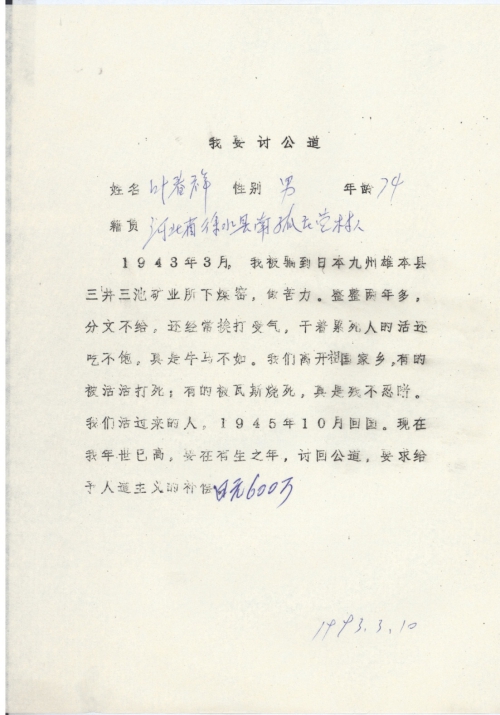 我要讨公道
姓名 叶春祥 性别 男 年龄 74
籍贯 河北省徐水县南孤庄营村人
1943年3月，我被骗到日本九州雄本县
三井三池矿业所下煤窑，做苦力。整整两年多，
分文不给，还经常挨打受气，干着累死人的活还
吃不饱，真是牛马不如。我们离开祖国家乡，有的
被活活打死；有的被瓦斯烧死，真是残不忍睹。
我们活过来的人，1945年10月回国。现在
我年世已高，要在有生之年，讨回公道，要求给
予人道主义的补偿日元600万
1993.3.10